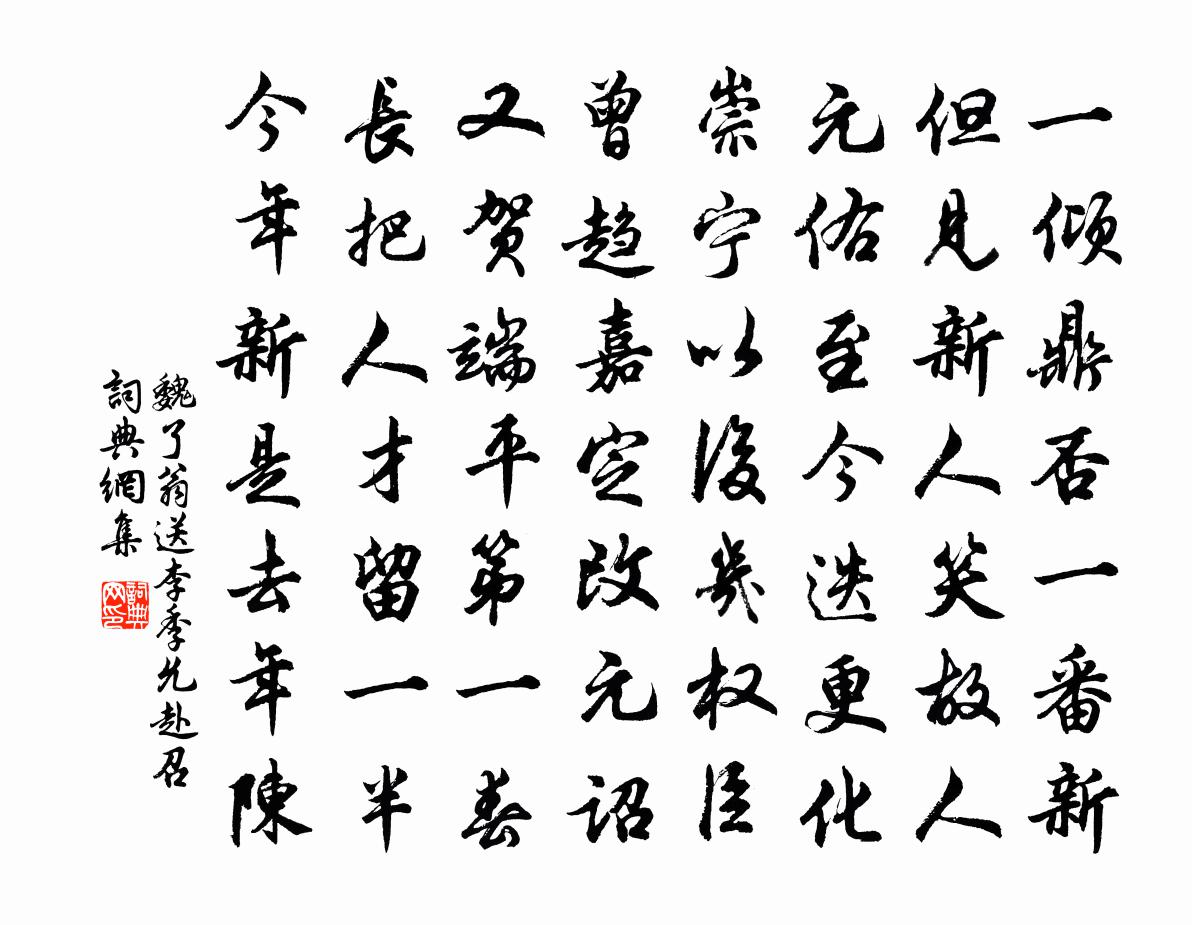 一倾鼎否一番新
但见新人笑故人
元佑至今迭更化
崇宁以後幾权臣
曾趋嘉定改元诏
又贺端平第一春
長把人才留一半
今年新是去年陳
魏了翁送李季允赴召
詞典網集
詞典
网印